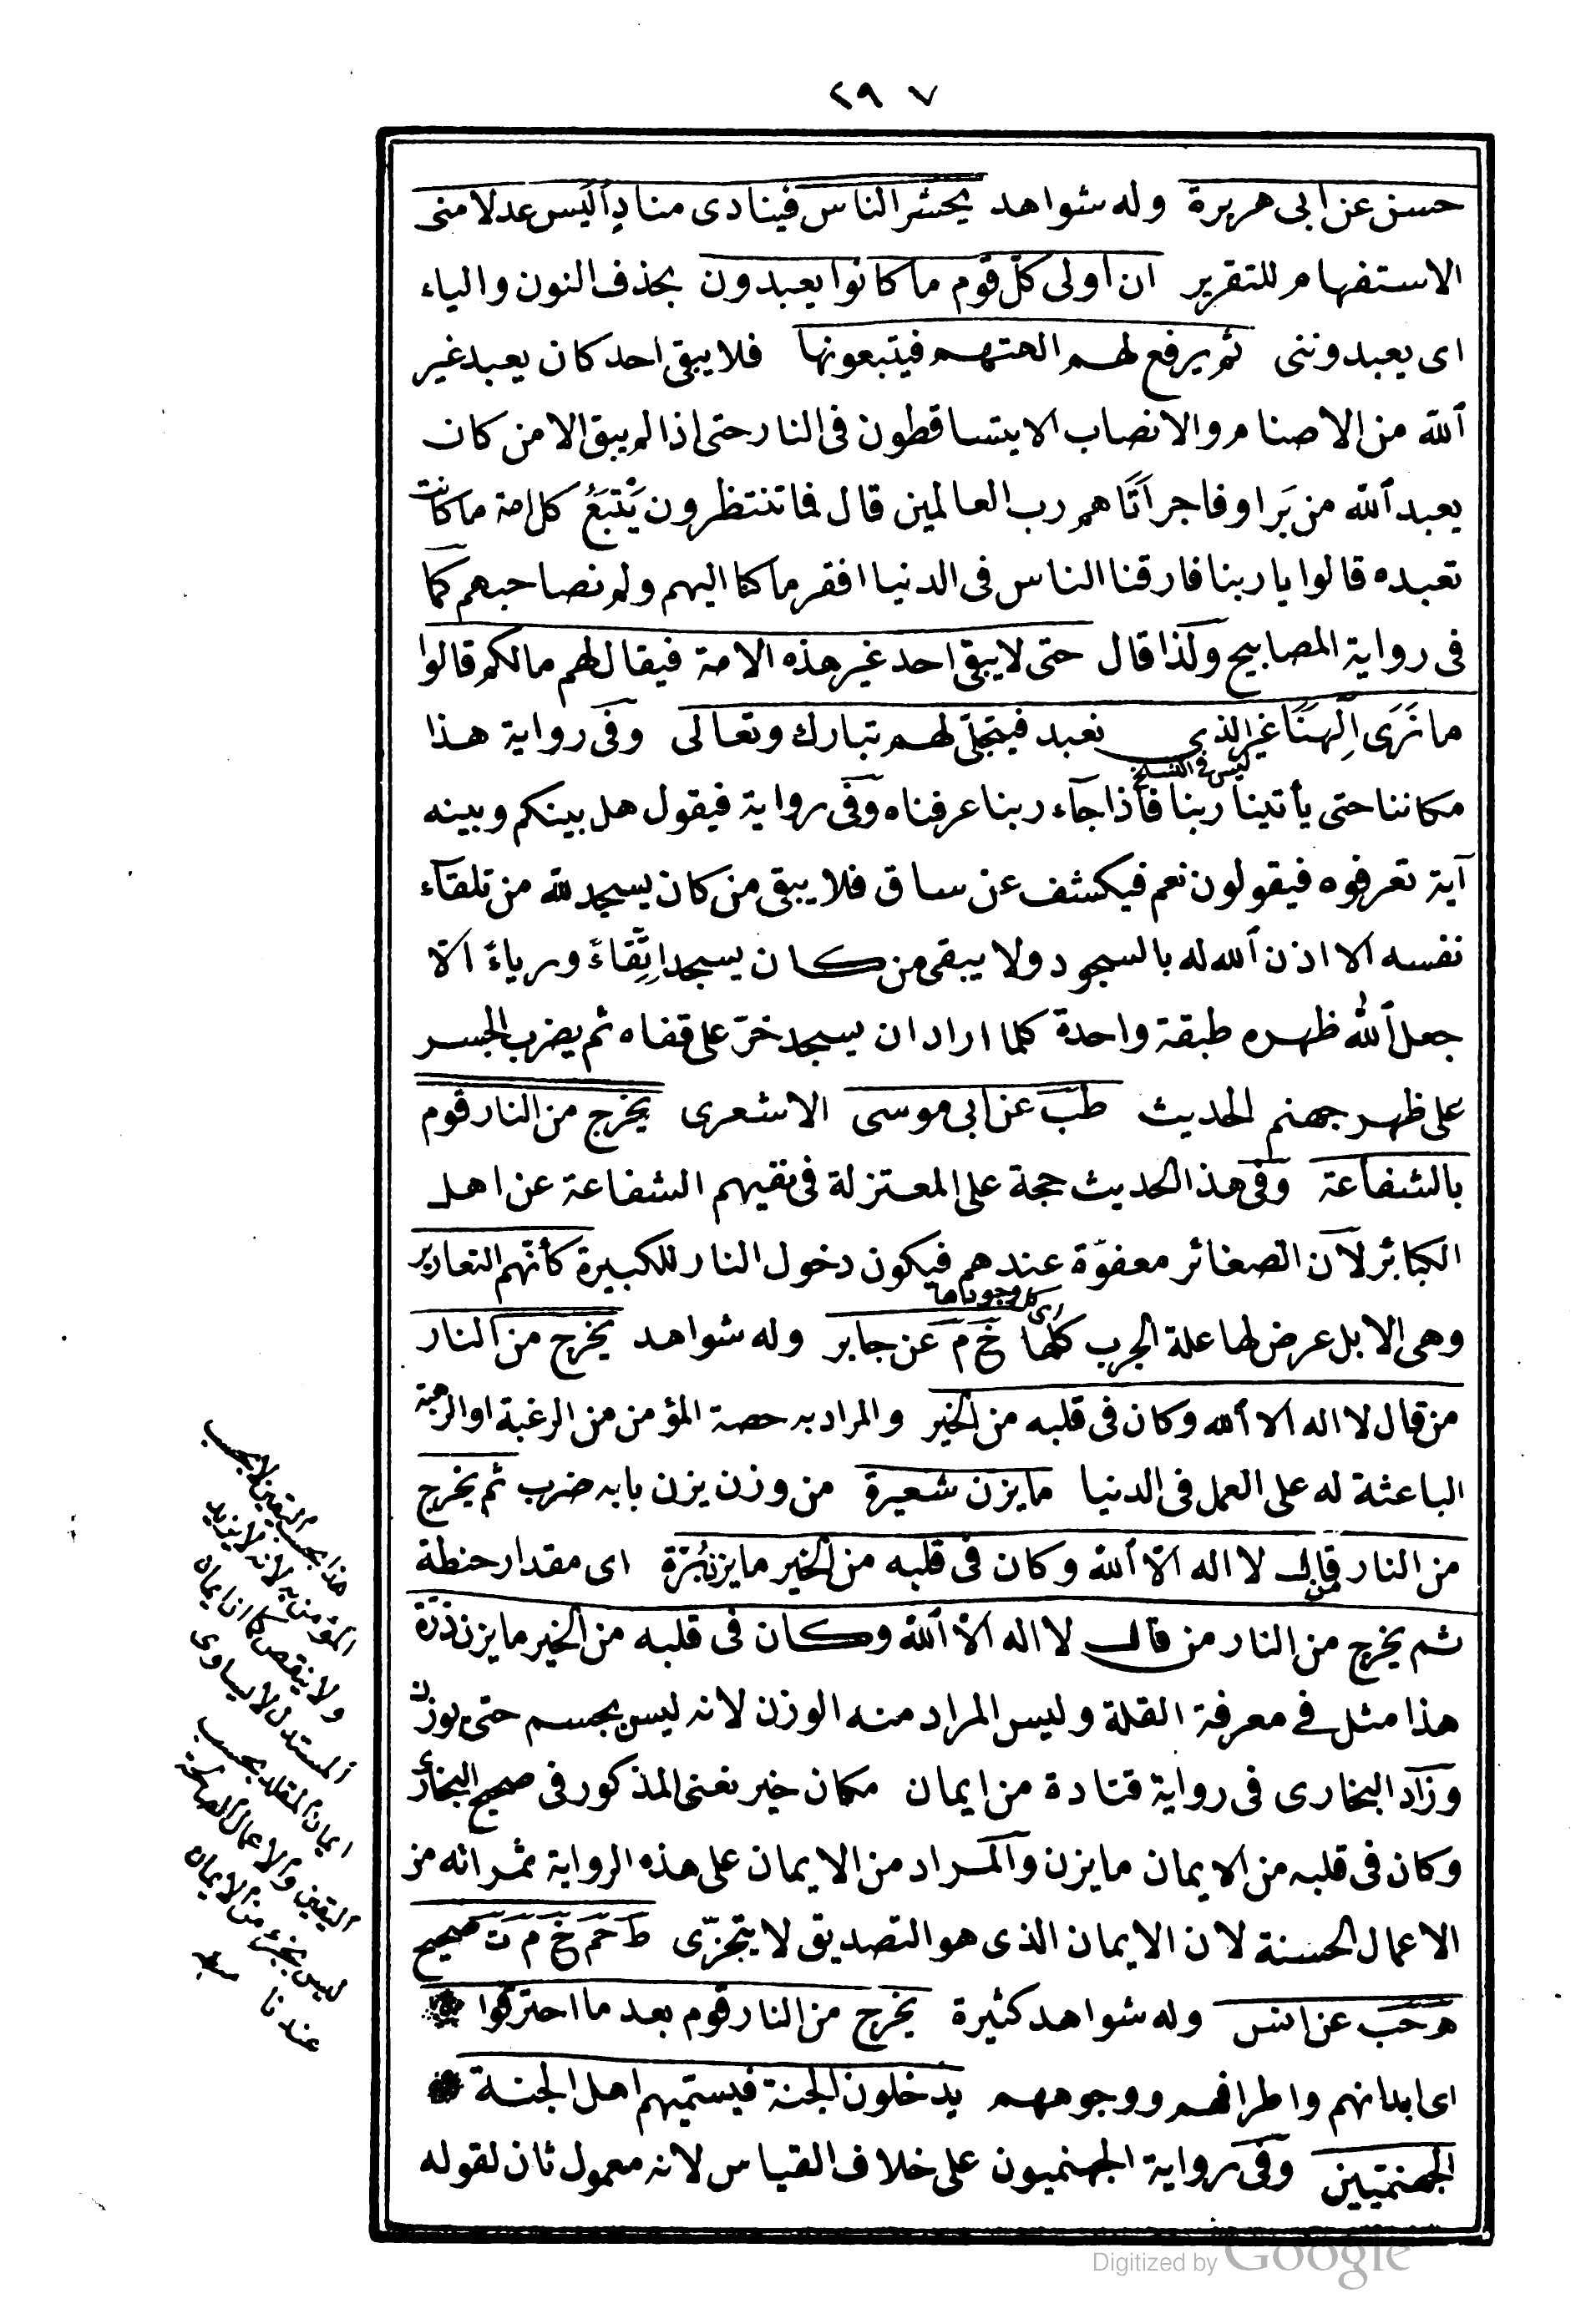 ٢٩٧
حسن عن ابى هريرة وله شواهد يحشر الناس فينادى منادٍ أليس عدلا منى
الاستفهام للتقرير ان اولى كلّ قوم ما كانوا يعبدون بحذف النون والياء
اى يعبدوننى ثم يرفع لهم الهتهم فيتبعونها فلا يبقى احد كان يعبد غير
الله من الاصنام والانصاب الا يتساقطون فى النار حتى اذا لم يبق الا من كان
يعبد الله من بَر او فاجر اَتَاهم رب العالمين قال فما تنتظرون يَتْبَعُ كل امة ما كانت
تعبده قالوا يا ربنا فارقنا الناس فى الدنيا افقر ما كنا اليهم ولم نصاحبهم كما
فى رواية المصابيح ولذا قال حتى لا يبقى احد غير هذه الامة فيقال لهم ما لكم قالوا
ما نَرَى اِلٰهَنَا غير الذى نعبد فيتجلّى لهم تبارك وتعالى وفى رواية هذا
ليس فى النسخ
مكاننا حتى يأتينا ربنا فاذا جآء ربنا عرفناه وفى رواية فيقول هل بينكم وبينه
آية تعرفوه فيقولون نعم فيكشف عن ساق فلا يبقى من كان يسجد لله من تلقآء
نفسه الا اذن الله له بالسجود ولا يبقى من كان يسجد اتِّقاءً ورياءً الا
جعل الله ظهره طبقة واحدة كلما اراد ان يسجد خرّ على قفاه ثم يضرب الجسر
على ظهر جهنم الحديث طب عن ابى موسى الاشعرى يخرج من النار قوم
بالشفاعة وفى هذا الحديث حجة على المعتزلة فى نفيهم الشفاعة عن اهل
الكبائر لان الصغائر معفوّة عندهم فيكون دخول النار للكبيرة كأنهم التعارير
اى كل وجوداها
وهى الابل عرض لها علة الجرب كلها خ م عن جابر وله شواهد يخرج من النار
من قال لا اله الا الله وكان فى قلبه من الخير والمراد به حصة المؤمن من الرغبة او الرهبة
الباعثة له على العمل فى الدنيا ما يزن شعيرة من وزن يزن بابه ضرب ثم يخرج
من النار من قال لا اله الّا الله وكان فى قلبه من الخير ما يزن بُرّة اى مقدار حنطة
ثم يخرج من النار من قال لا اله الا الله وكان فى قلبه من الخير ما يزن ذَرّة
هذا مثل فى معرفة القلة وليس المراد منه الوزن لانه ليس بجسم حتى يوزن
وزاد البخارى فى رواية قتادة من ايمان مكان خير نعنى المذكور فى صحيح البخارى
وكان فى قلبه من الايمان ما يزن والمراد من الايمان على هذه الرواية ثمراته من
الاعمال الحسنة لان الايمان الذى هو التصديق لا يتجزّى ط حم خ م ت صحيح
ه حب عن انس وله شواهد كثيرة يخرج من النار قوم بعد ما احترقوا
اى ابدانهم واطرافهم ووجوههم يدخلون الجنة فيسمّيهم اهل الجنة
الجهنميّين وفى رواية الجهنميون على خلاف القياس لانه معمول ثان لقوله
هذا بحسب
المؤمن به لانه لا يزيد
ولا ينقص كما ان ايمان
المستدل لا يساوى
ايمان المقلد بحسب
اليقين والاعمال الصالحة
ليس بجزء من الايمان
عندنا
Digitized by Google